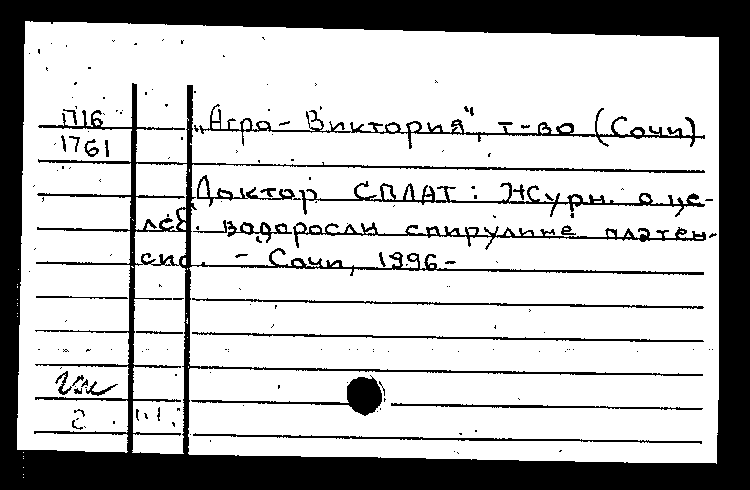 П16
1761
„Агро-Виктория", т-во (Сочи)
Доктор СПЛАТ: Журн. о це-
леб. водоросли спирулине платен-
сис. - Сочи, 1996-
2